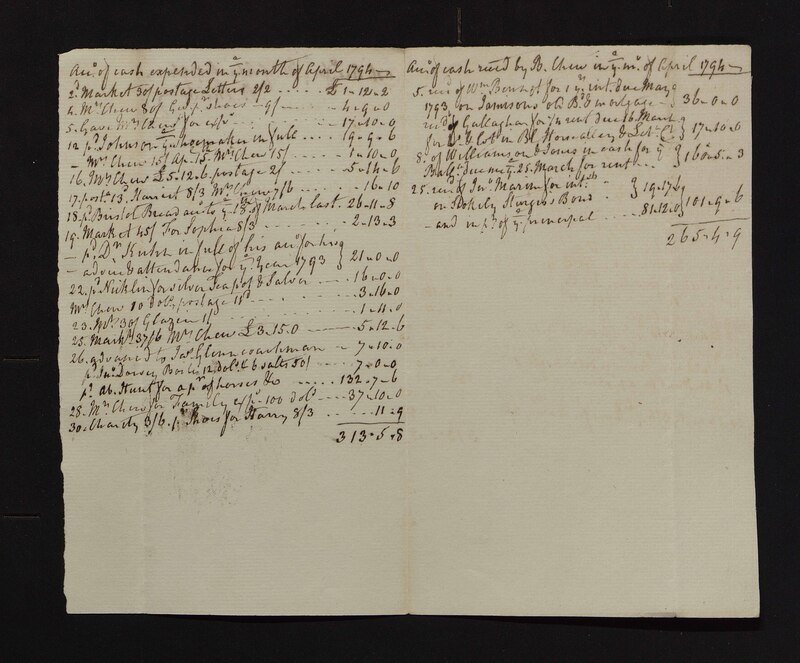 Acc.t of cash expended in y.e month of April 1794
2.d Market 30/ postage Letters 2/2 .... £ 1-12-2
4. M.rs Chew 80/ Geo. p.r shoes 9/ ... 4-9-0
5. Gave M.rs Chew for exp.s ... 17-10-0
12 p.d Johnson y.e shoemaker in full ... 9-9-6
- M.rs Chew 15/ Ap. 15. M.rs Chew 15/ 1-10-0
16. M.rs Chew £5-12-6 postage 2/ ... 5-14-6
17. post.e 13.d Harriet 8/3 M.rs Chew 7/6 .. 16-10
18. p.d Bristol Bread acc.t to y.e 18.th of March last. 26-11-8
19. Market 45/ For Sophia 8/3 ... 2-13-3
- p.d D.r Kuhn in full of his acc.t for his
- advice & attendance for y.e Year 1793 } 21-0-0
22. p.d Nicklin for silver Teapot & Salver - 16-0-0
M.rs Chew 10 dol.s postage 11.d ... 3-16-0
23. M.rs 30/ Glazier 1/ ... 1-11-0
25. Mark.t 37/6 M.rs Chew £3-15.0 ... 5-12-6
26. advanced to Ja.s Glenn coachman - 7-10-0
p.d Jn.o Dorsey 12 dol.s & 6 salts 50/ ... 7-0-0
p.d Ab. Hunt for a p.r of horses &c ..... 132-7-6
28. M.rs Chew for Family exp.s 100 dol.s 37-10-0
30. Charity 3/6. p.r Shoes for Harry 8/3 ... 11-9
313-5-8
Acc.t of cash rec.d by B. Chew in y.e m.o of April 1794
5. rec.d of W.m Bennet for 1 y.rs int. due May
1793 on Jamisons old B.d & mortgage } 36-0-0
rec.d of Gallaghan for ½ y.rs rent due 16 March
for L.t & Lot in Bl. Horse alley } 17-10-0
8. of Williamson & Jones in cash for y.e
Bal.ce due me y.e 25. March for rent } 160-5-3
25. rec.d of Jn.o Marim for int.
on Stokely Sturgess Bond } 19-17-6
- and in p.t of y.e principal .... 81-12-0 } 101-9-6
265-4-9